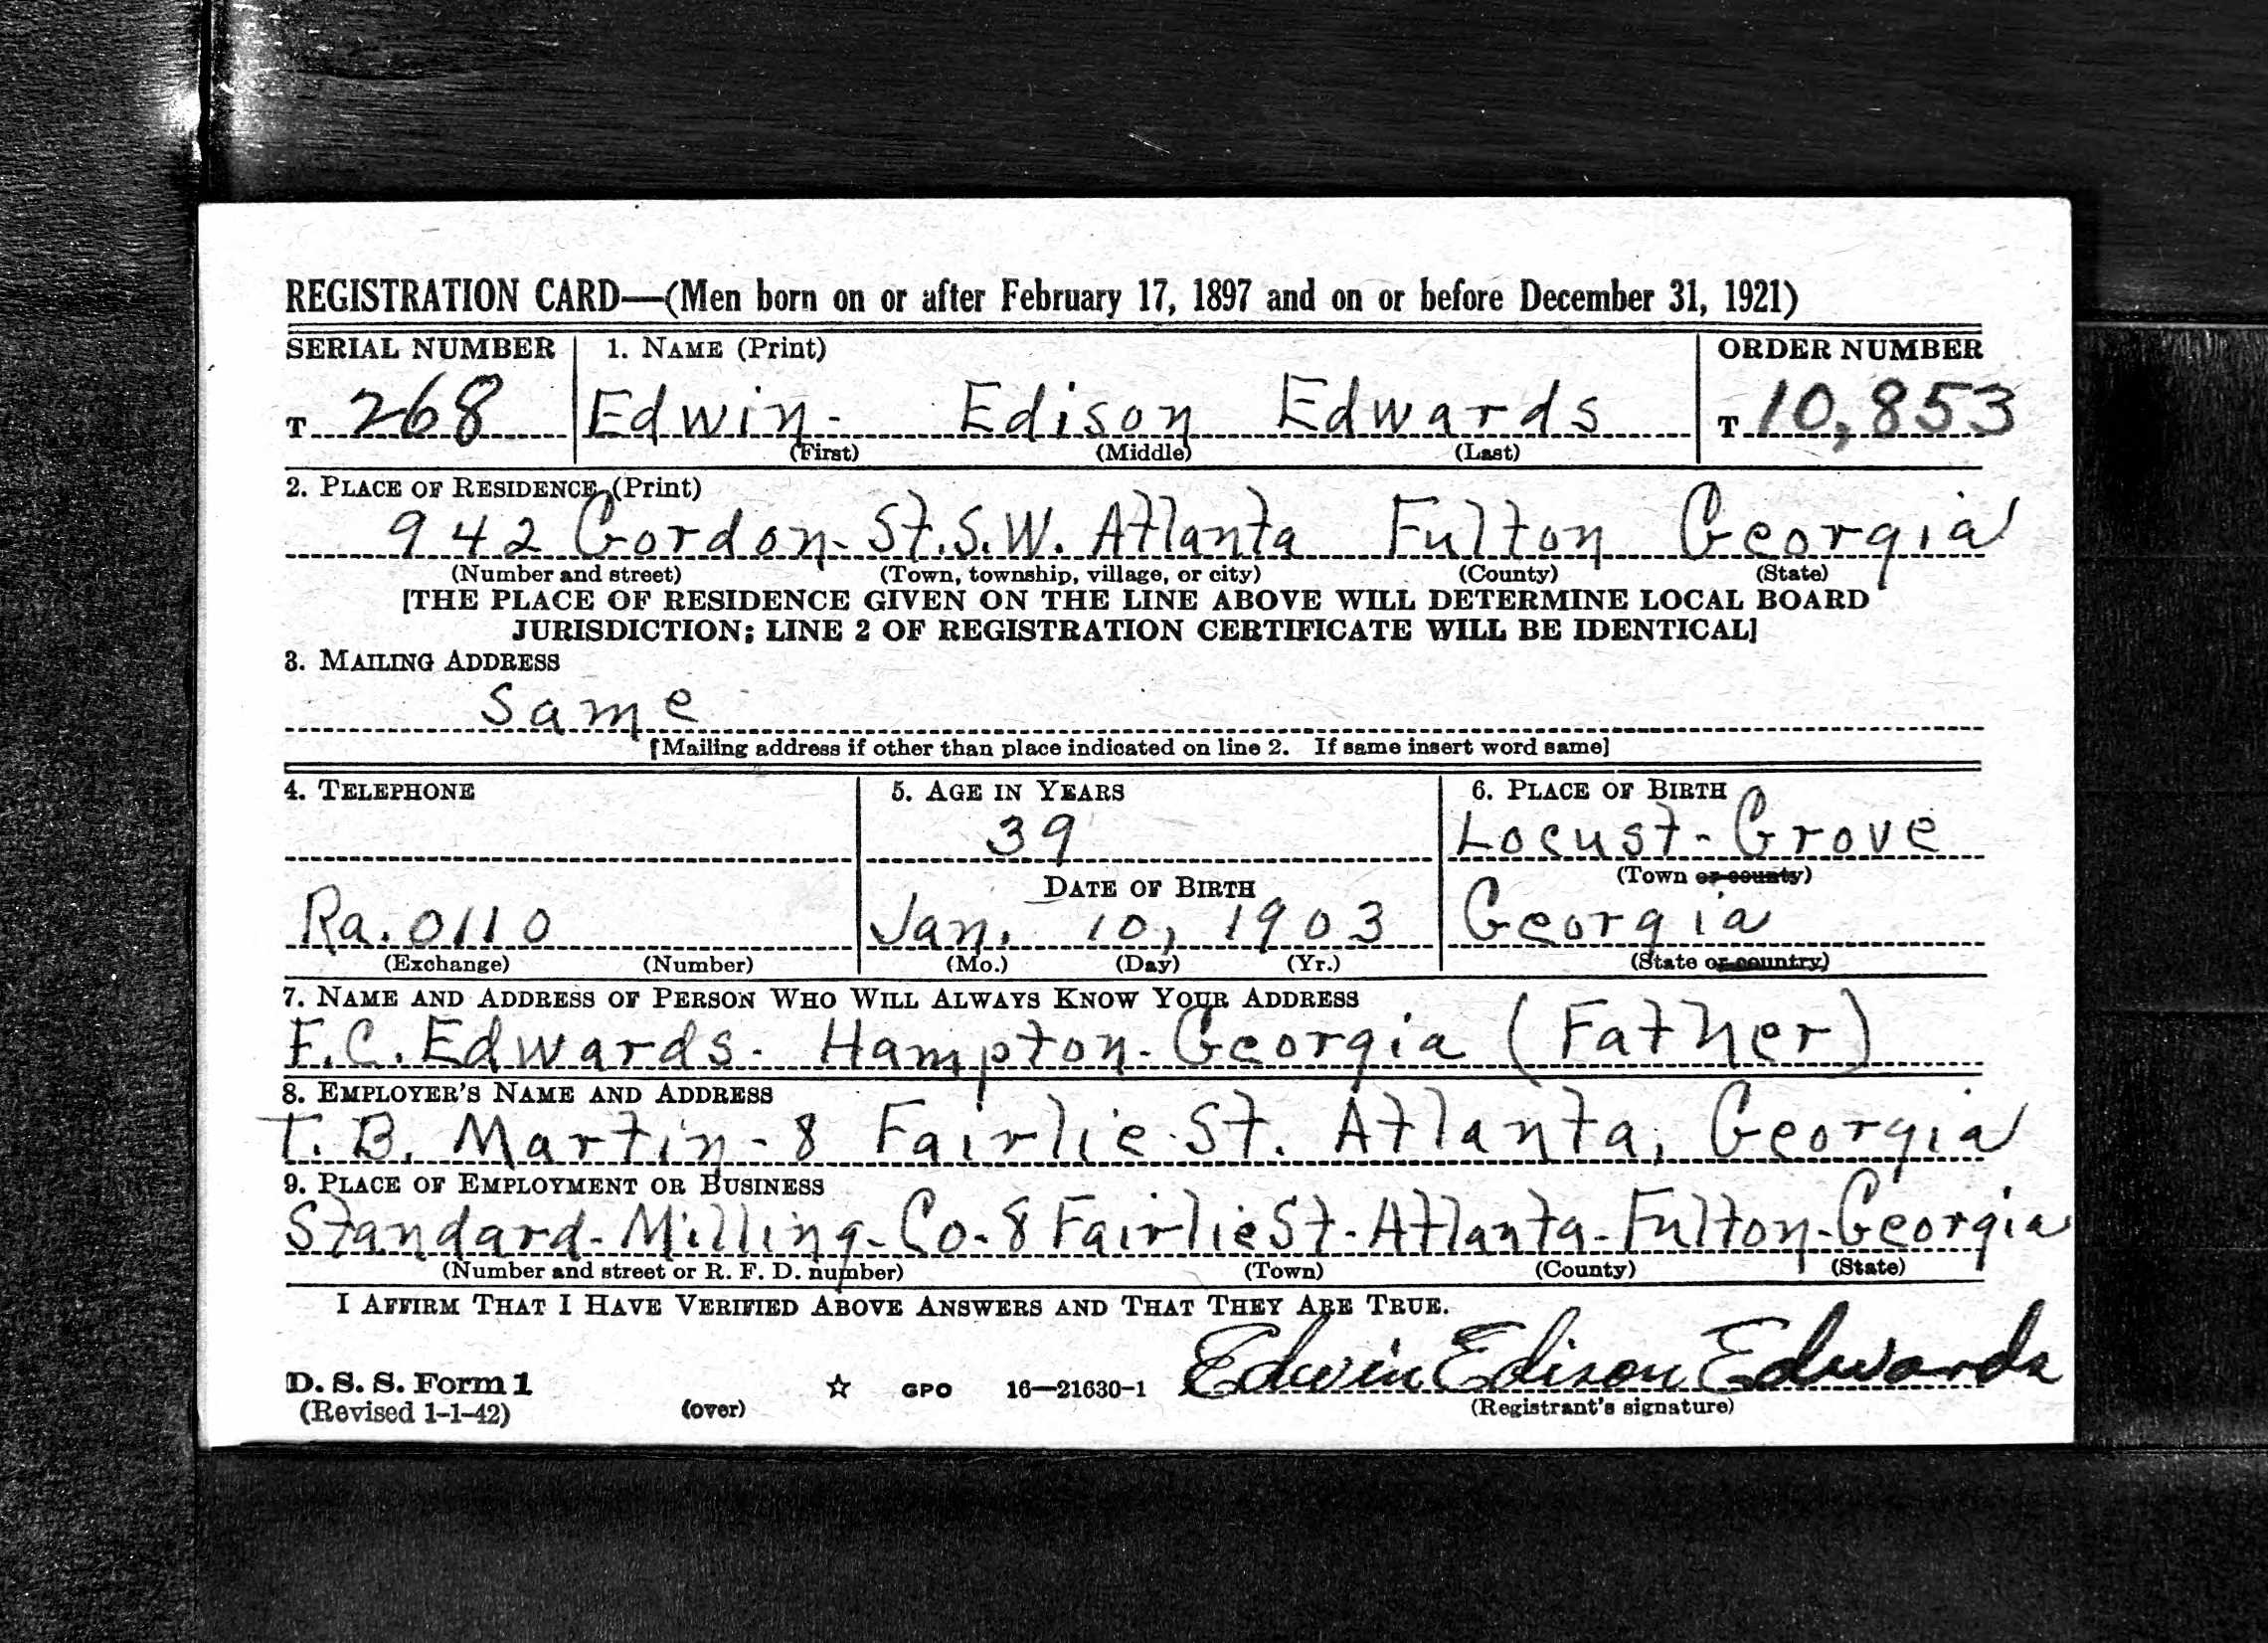 REGISTRATION CARD—(Men born on or after February 17, 1897 and on or before December 31, 1921)
SERIAL NUMBER 1. NAME (Print) ORDER NUMBER
T 268 Edwin- Edison Edwards T 10,853
(First) (Middle) (Last)
2. PLACE OF RESIDENCE (Print)
942 Gordon- St. S.W. Atlanta Fulton Georgia
(Number and street) (Town, township, village, or city) (County) (State)
[THE PLACE OF RESIDENCE GIVEN ON THE LINE ABOVE WILL DETERMINE LOCAL BOARD
JURISDICTION; LINE 2 OF REGISTRATION CERTIFICATE WILL BE IDENTICAL]
3. MAILING ADDRESS
Same
[Mailing address if other than place indicated on line 2. If same insert word same]
4. TELEPHONE 5. AGE IN YEARS 6. PLACE OF BIRTH
39 Locust-Grove
DATE OF BIRTH (Town or county)
Ra. 0110 Jan. 10, 1903 Georgia
(Exchange) (Number) (Mo.) (Day) (Yr.) (State or country)
7. NAME AND ADDRESS OF PERSON WHO WILL ALWAYS KNOW YOUR ADDRESS
F.C. Edwards- Hampton- Georgia (Father)
8. EMPLOYER'S NAME AND ADDRESS
T. B. Martin-8 Fairlie St. Atlanta, Georgia
9. PLACE OF EMPLOYMENT OR BUSINESS
Standard-Milling-Co-8 Fairlie St-Atlanta-Fulton-Georgia
(Number and street or R. F. D. number) (Town) (County) (State)
I AFFIRM THAT I HAVE VERIFIED ABOVE ANSWERS AND THAT THEY ARE TRUE.
Edwin Edison Edwards
D. S. S. Form 1 (over) ☆ GPO 16—21630-1 (Registrant's signature)
(Revised 1-1-42)